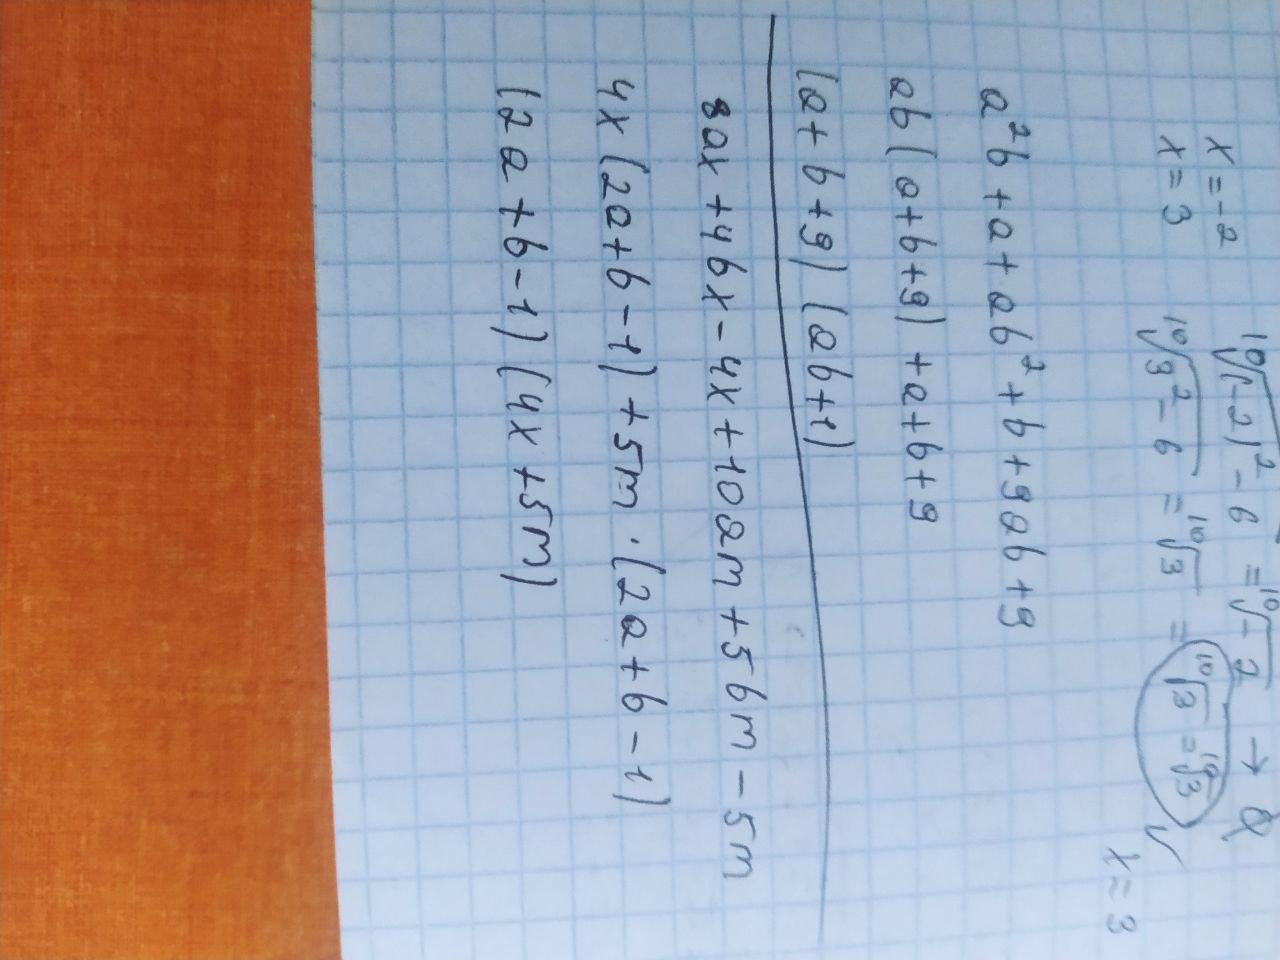 x = -2 ¹⁰√(-2)² - 6 = ¹⁰√-2 →
x = 3 ¹⁰√3² - 6 = ¹⁰√3 = ¹⁰√3 = ¹⁰√3 ✓
x = 3
a²b + a + ab² + b + 9ab + 9
ab(a+b+9) + a+b+9
(a+b+9)(ab+1)
8ax + 4bx - 4x + 10am + 5bm - 5m
4x(2a+b-1) + 5m · (2a+b-1)
(2a+b-1)(4x+5m)